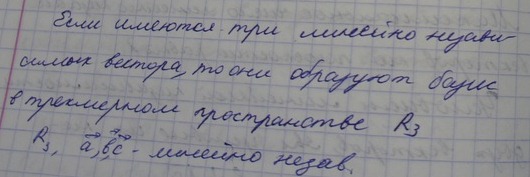 Если имеются три линейно незави-
симых вектора, то они образуют базис
в трехмерном пространстве R₃
R₃, a⃗, b⃗, c⃗ - линейно незав.